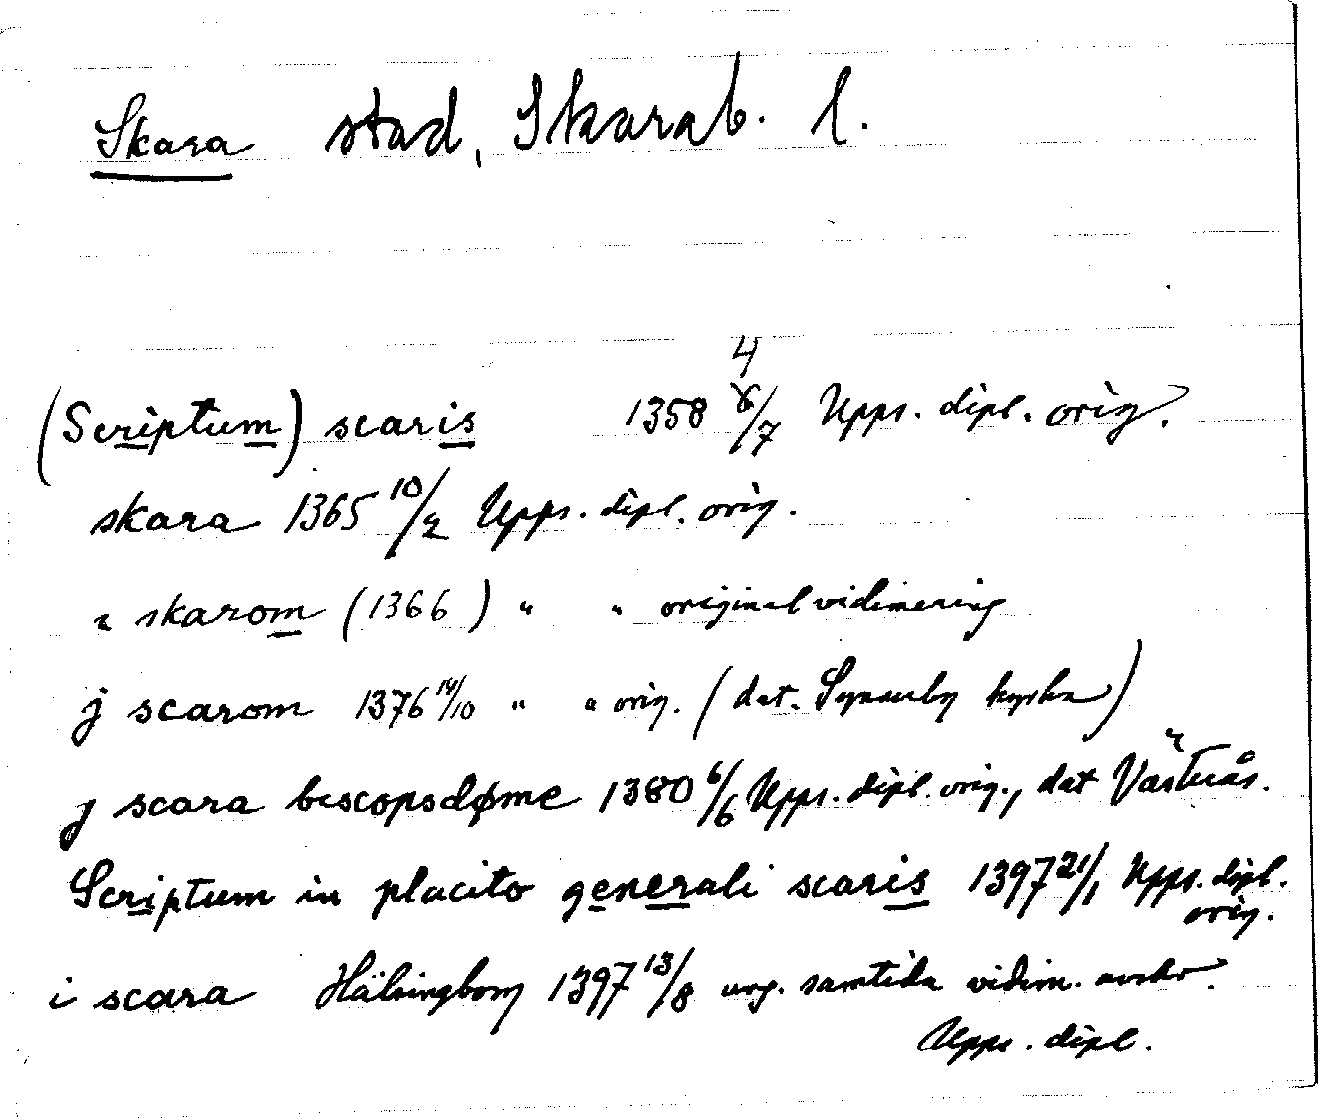 Skara stad, Skarab. l.
(Scriptum) scaris 1358 4/7 Upps. dipl. orig.
skara 1365 10/2 Upps. dipl. orig.
skarom (1366) " " original vidimering
j scarom 1376 14/10 " " orig. (dat. kyrka)
j scara biscopsdøme 1380 6/6 Upps. dipl. orig., dat Västerås.
Scriptum in placito generali scaris 1397 21/1 Upps. dipl.
orig.
i scara Hälsingborg 1397 13/8 samtida vidim. avskr.
Upps. dipl.